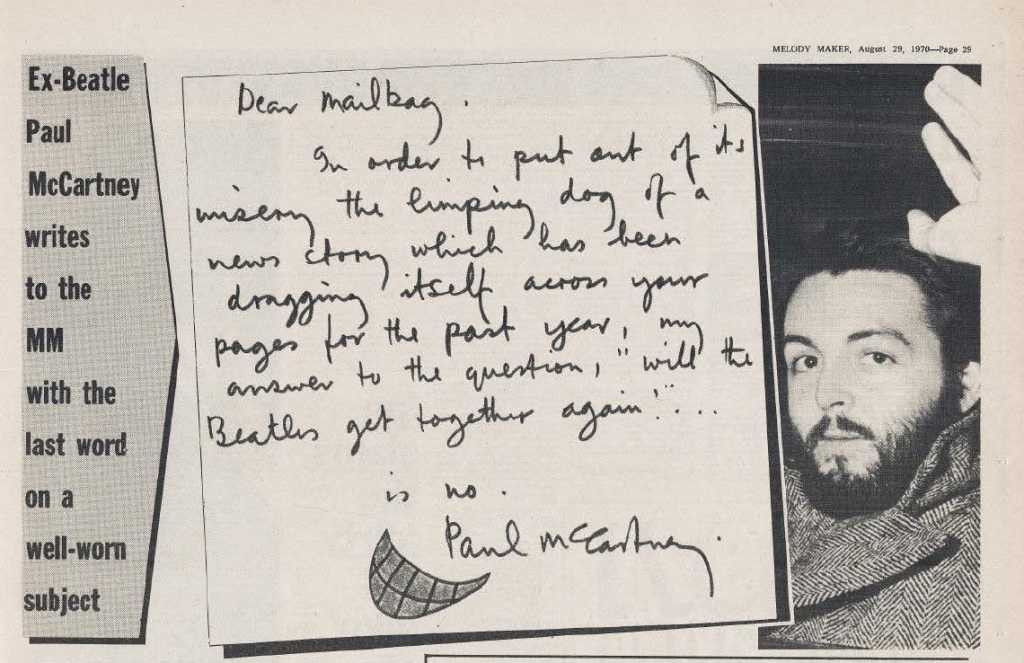 MELODY MAKER, August 29, 1970—Page 29
Ex-Beatle
Paul
McCartney
writes
to the
MM
with the
last word
on a
well-worn
subject
Dear Mailbag.
In order to put out of its
misery the limping dog of a
news story which has been
dragging itself across your
pages for the past year, my
answer to the question, "will the
Beatles get together again"...
is no.
Paul McCartney.